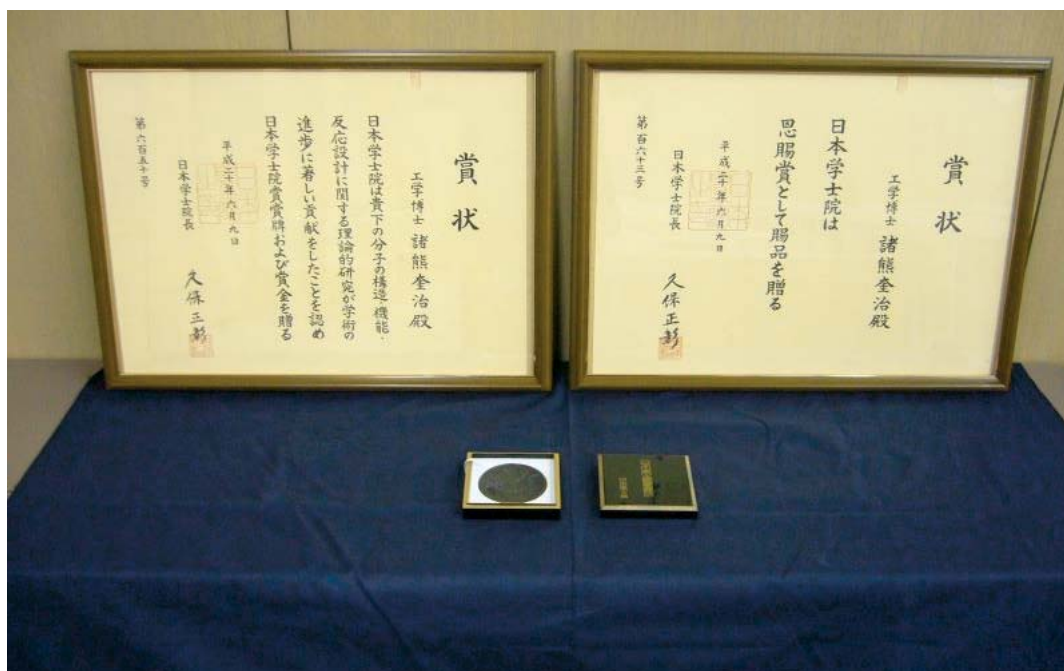 賞状
工学博士 諸熊奎治殿
日本学士院は貴下の分子の構造・機能・
反応設計に関する理論的研究が学術の
進歩に著しい貢献をしたことを認め
日本学士院賞賞牌および賞金を贈る
平成二十年六月九日
日本学士院長
久保正彰
第六百五十号
賞状
工学博士 諸熊奎治殿
日本学士院は
恩賜賞として賜品を贈る
平成二十年六月九日
日本学士院長
久保正彰
第百六十三号